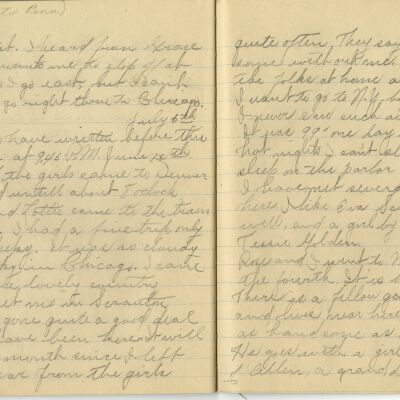 Penn)
it. I heard from Grace
wants me to stop off at
I go east, but I can't
go right thru to Chicago.
July 6th
have written before this
at 9:45 P.M. June 12th
the girls came to Denver
d untill about 7 oclock
nd Lottie came to the train
I had a fine trip only
eepy. It was so cloudy
in Chicago. I came
se lovely country
et me in Scranton,
gone quite a good deal
have been here. It will
month since I left
ear from the girls
quite often. They say
some without me
the folks at home a
I want to go to N.Y. be
I never saw such a
It was 99° one day
hot nights I cant sl
sleep on the parlor
I have met sever
here. I like Eva Se
well, and a girl by
Tessie Holden.
Rose and I went to N
the fourth. It is s
There is a fellow goo
and lives near here
as handsome as
He goes with a girl
Ellen, a grand d